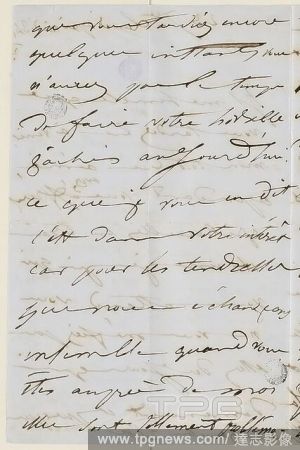 que vous tardiez encore
quelques instants vous
n'aurez pas le temps
de faire votre
aujourd'hui.
ce que je vous en dit
c'est dans votre intérêt
car pour les tendresses
que nous échangeons
ensemble quand vous
êtes auprès de moi
elles sont tellement
TPG
www.tpgnews.com / 達志影像